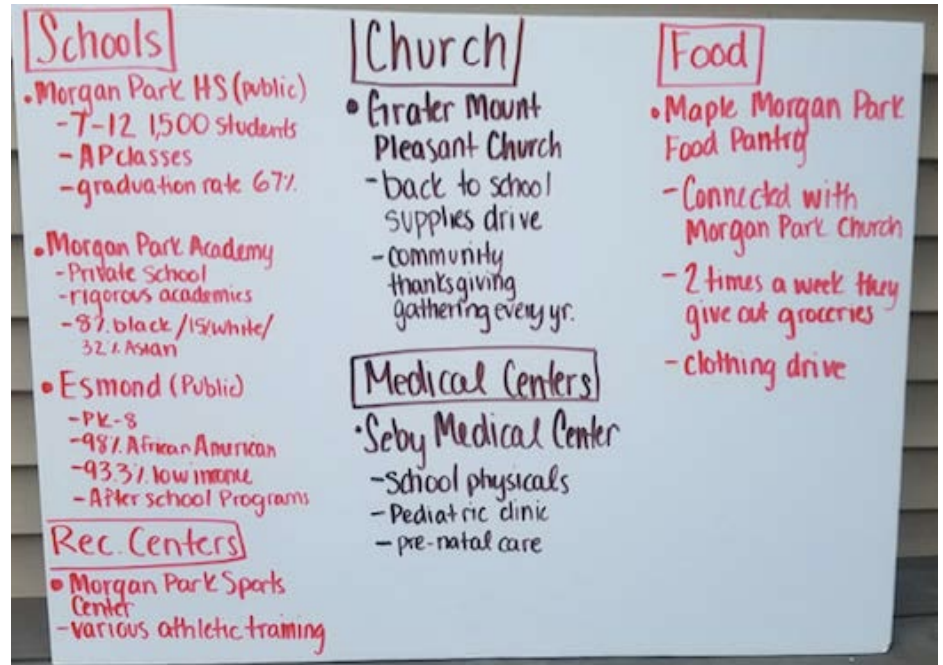 Schools
• Morgan Park HS (public)
-7-12 1,500 students
- AP classes
-graduation rate 67%
• Morgan Park Academy
-Private school
-rigorous academics
-8% black /15%white/
32% Asian
• Esmond (Public)
-PK-8
-98% African American
-93.3% low income
-After school Programs
Rec. Centers
• Morgan Park Sports
Center
-various athletic training
Church
• Grater Mount
Pleasant Church
-back to school
supplies drive
-community
thanksgiving
gathering every yr.
Medical Centers
• Seby Medical Center
-School physicals
- Pediatric clinic
- pre-natal care
Food
• Maple Morgan Park
Food Pantry
-Connected with
Morgan Park Church
- 2 times a week they
give out groceries
- clothing drive